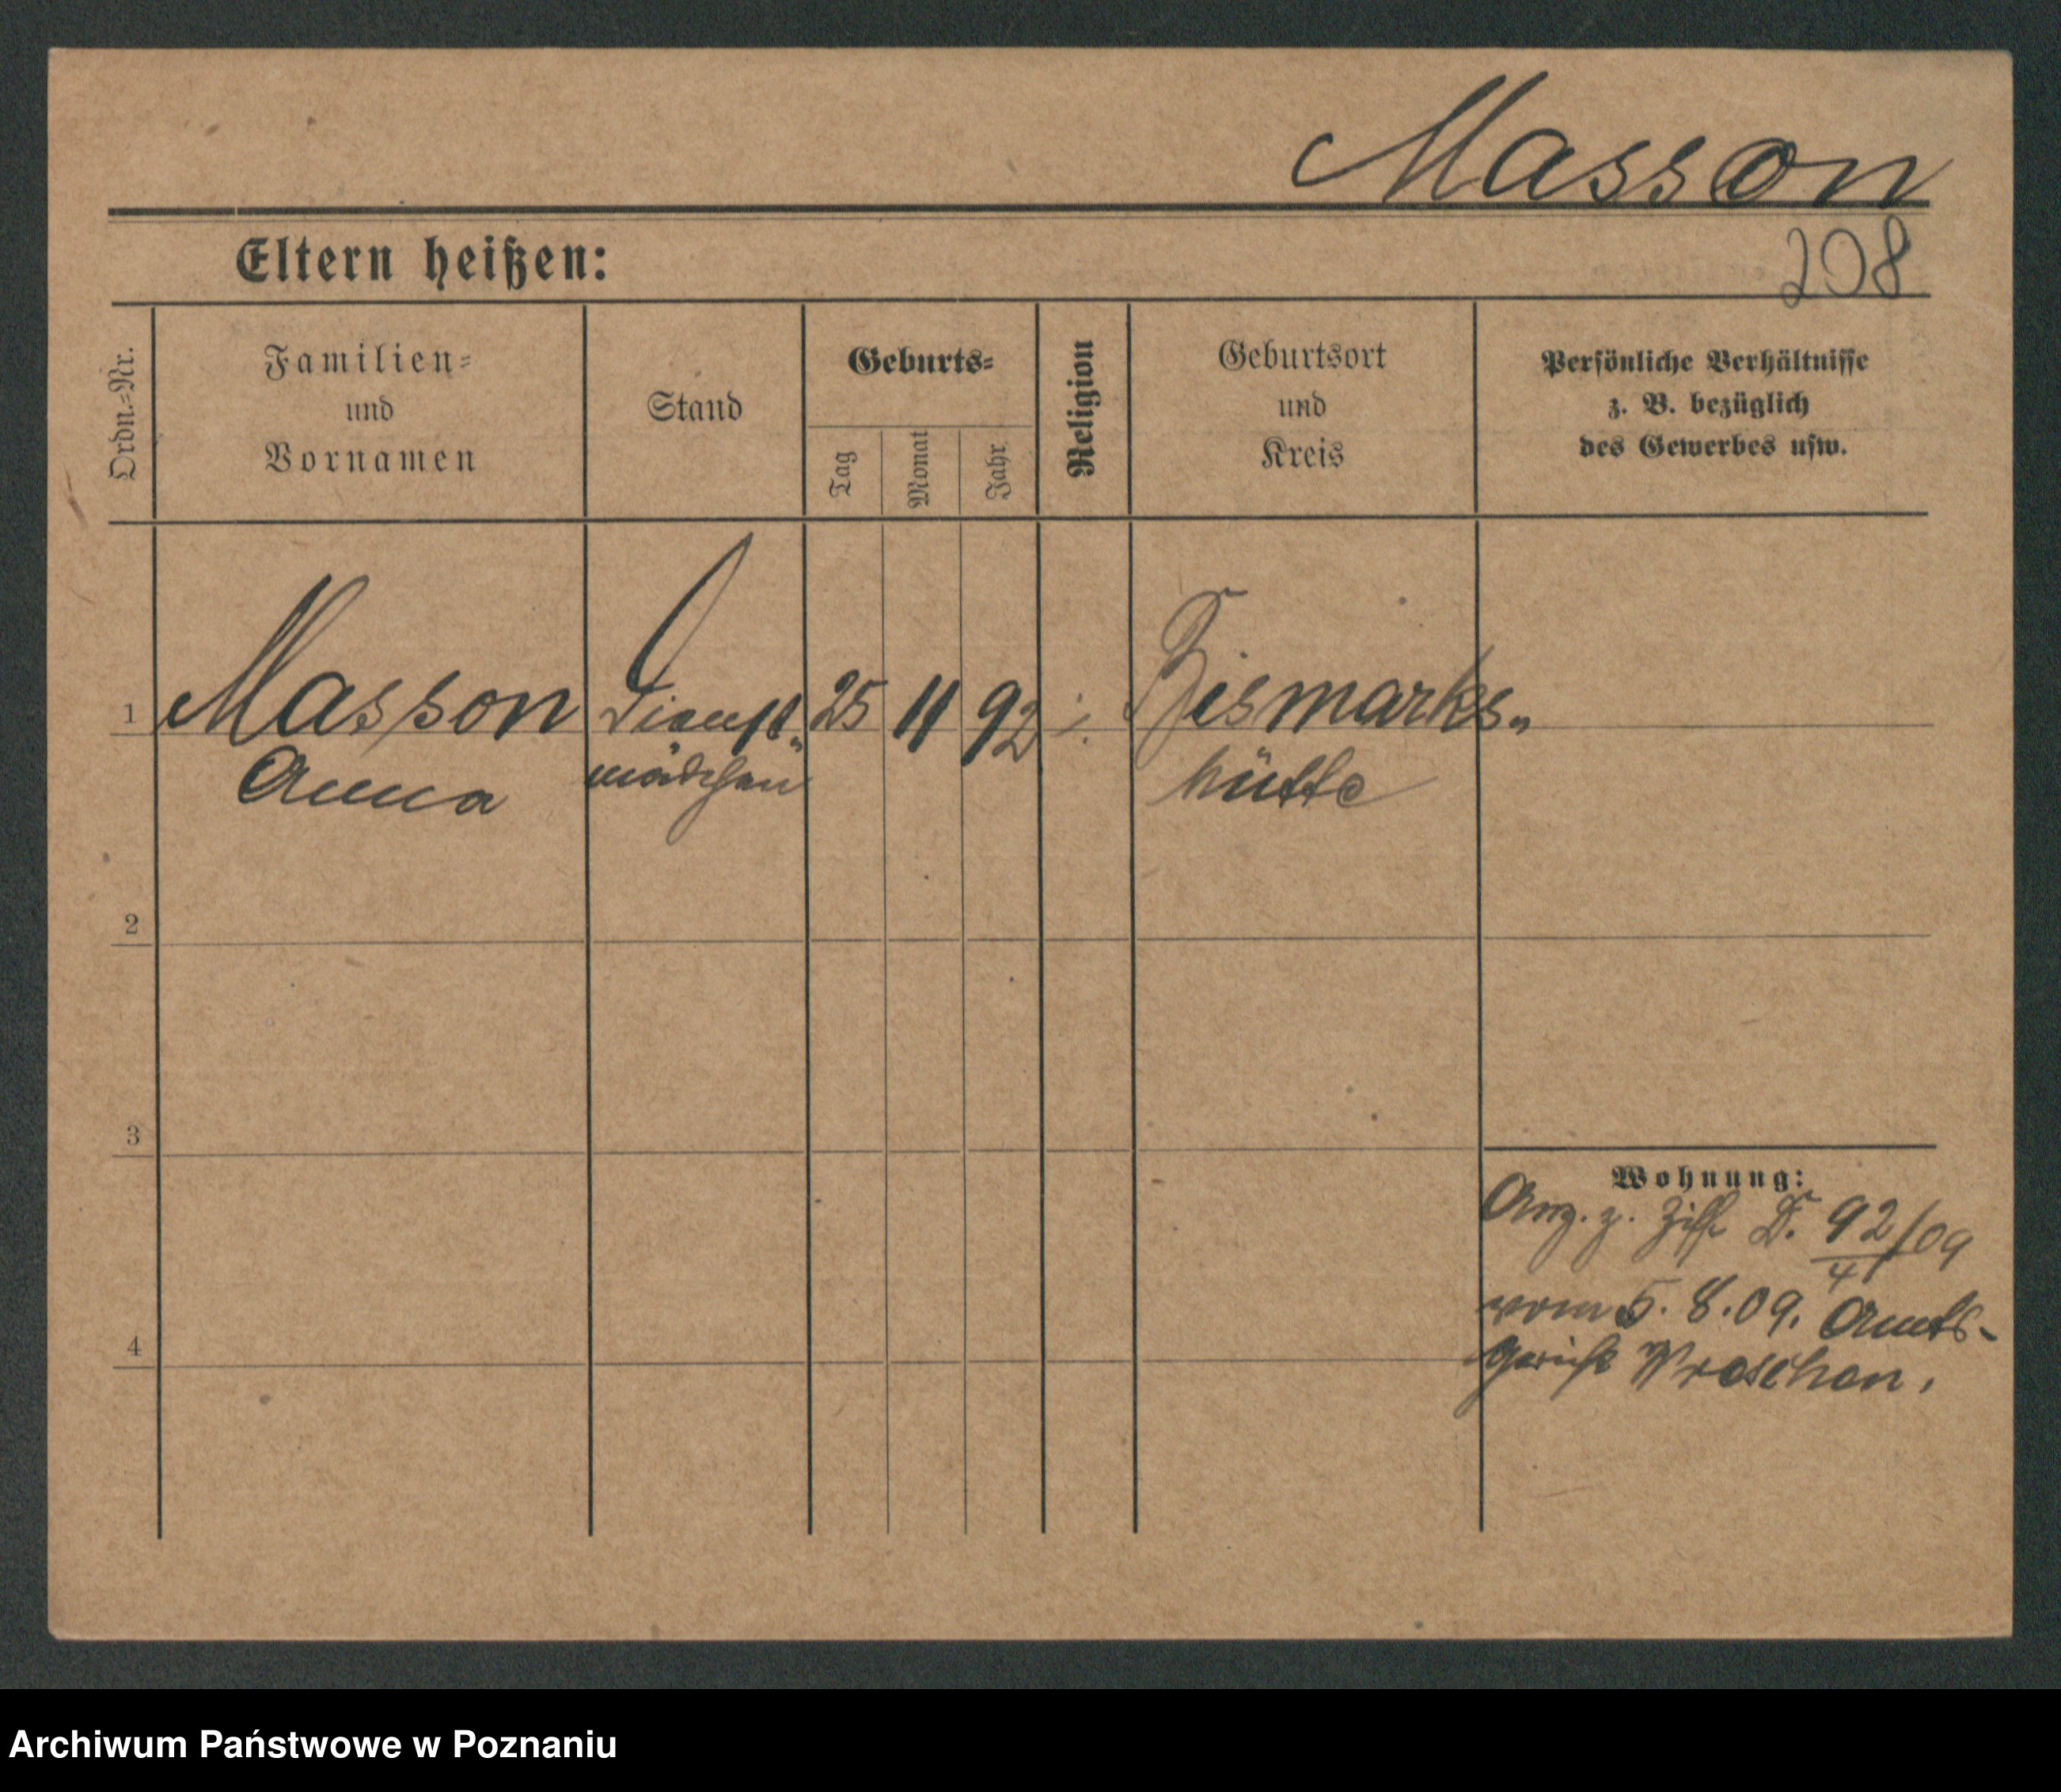 Masson
Eltern heißen:
208
Ordn.-Nr.
Familien-
und
Vornamen
Stand
Geburts-
Tag
Monat
Jahr
Religion
Geburtsort
und
Kreis
Persönliche Verhältnisse
z. B. bezüglich
des Gewerbes usw.
1
Masson
Anna
Dienst-
mädchen
25
11
92
Bismarks-
hütte
2
3
4
Wohnung:
Anz. z. D. 92/09
4
vom 5. 8. 09. Amts-
gericht Wreschen.
Archiwum Państwowe w Poznaniu